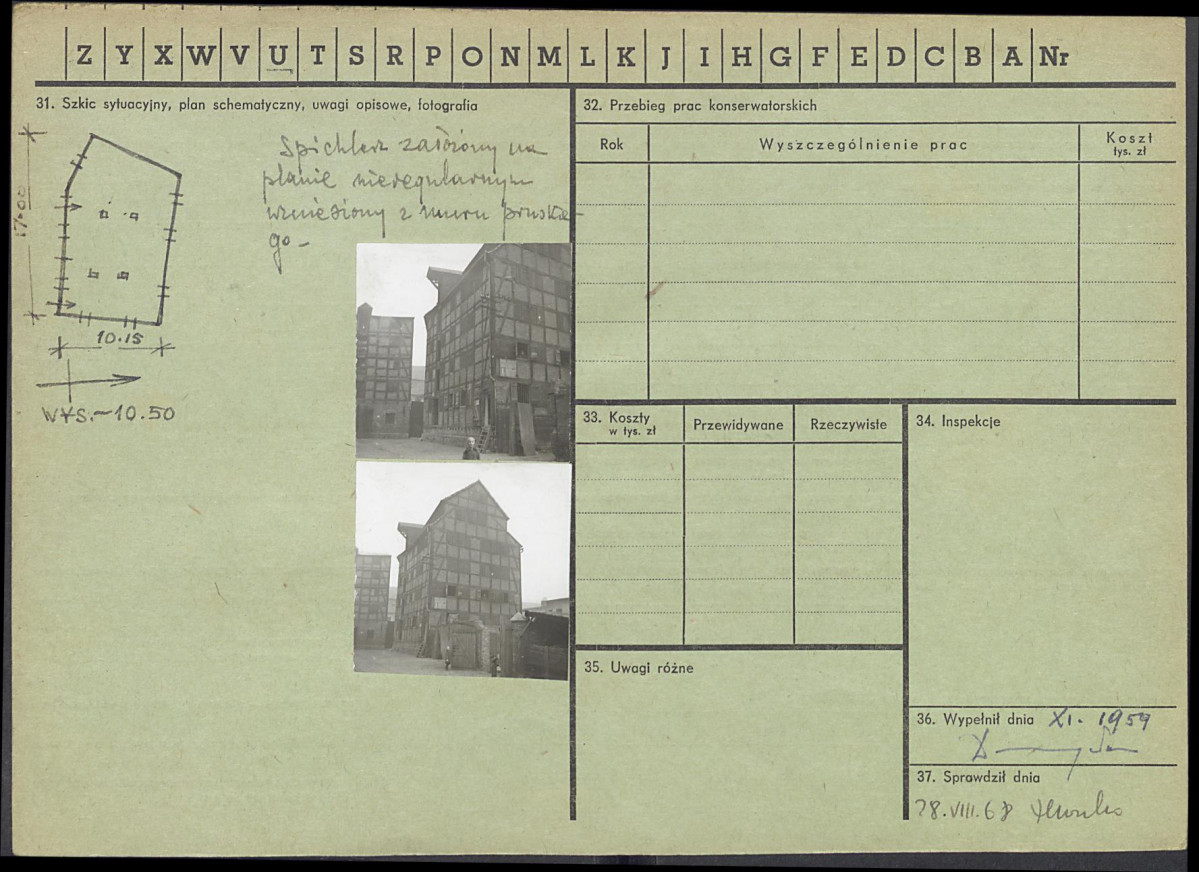 Z Y X W V U T S R P O N M L K J I H G F E D C B A Nr
31. Szkic sytuacyjny, plan schematyczny, uwagi opisowe, fotografia
Spichlerz założony na
planie nieregularnym
wzniesiony z muru pruskie-
go-
17.00
10.15
WYS.~10.50
32. Przebieg prac konserwatorskich
Rok
Wyszczególnienie prac
Koszt
tys. zł
33. Koszty
w tys. zł
Przewidywane
Rzeczywiste
34. Inspekcje
35. Uwagi różne
36. Wypełnił dnia XI. 1959
37. Sprawdził dnia
28.VIII.68